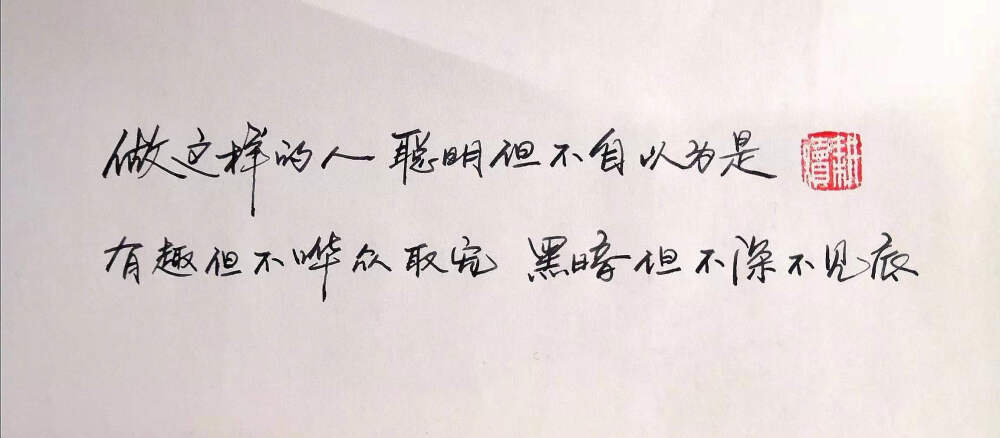 做这样的人 聪明但不自以为是
有趣但不哗众取宠 黑暗但不深不见底